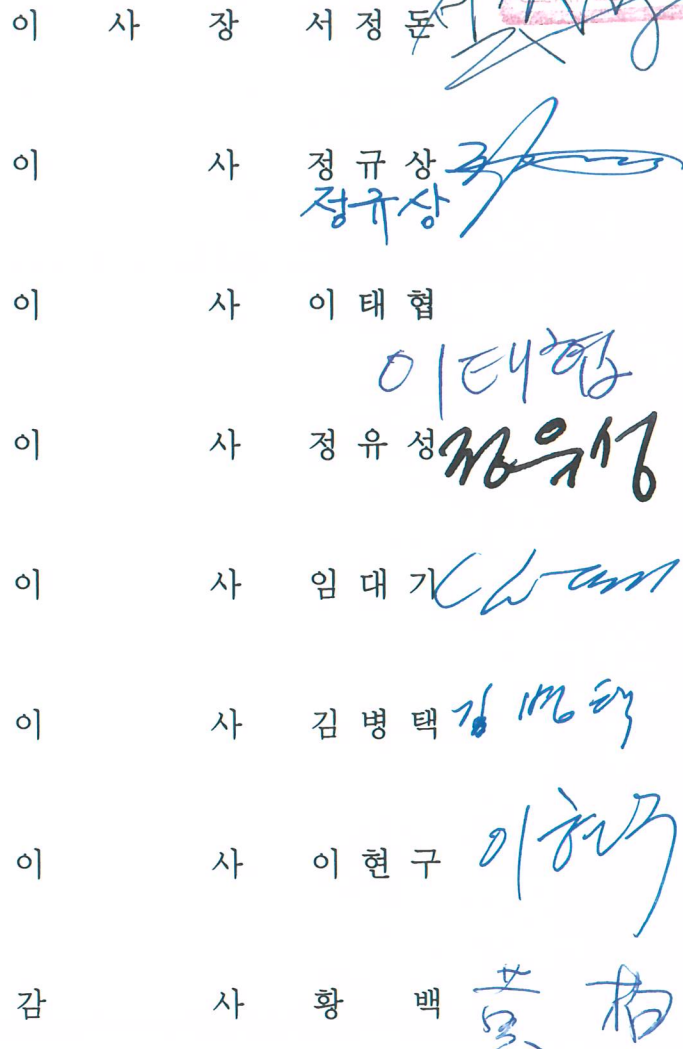 이 사 장 서 정 돈
이 사 정 규 상
정규상
이 사 이 태 협
이태협
이 사 정 유 성 정유성
이 사 임 대 기
이 사 김 병 택 김병택
이 사 이 현 구 이현구
감 사 황 백 黃 栢